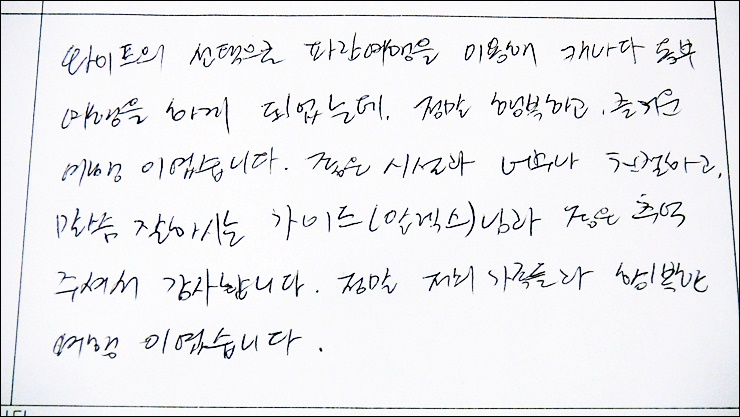 와이프의 선택으로 파란여행을 이용해 캐나다 동부
여행을 하게 되었는데, 정말 행복하고, 즐거운
여행 이였습니다. 좋은 시설과 너무나 친절하고,
말씀 잘하시는 가이드(알렉스)님과 좋은 추억
주셔서 감사합니다. 정말 저희 가족들과 행복한
여행 이였습니다.